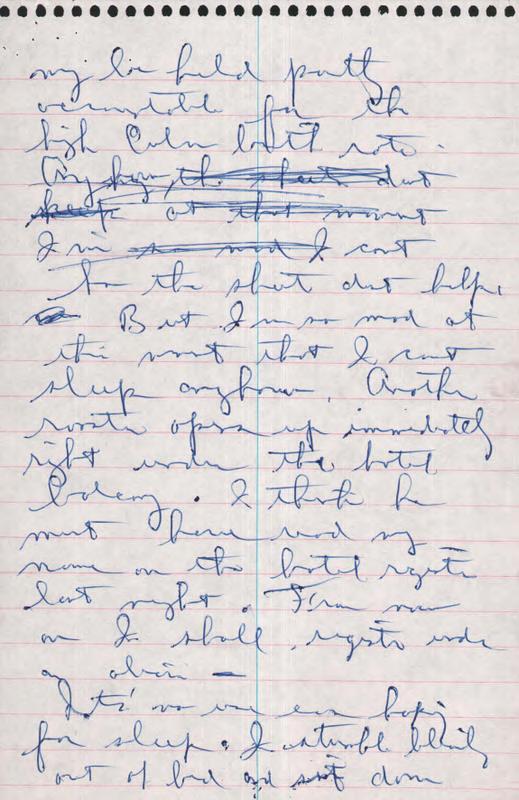 my be held partly
accountable for the
high Cuban birth rate.
Anyhow, the sheet dont
keep at that moment
I'm so mad I cant
the sheet dont help.
But I'm so mad at
this moment that I cant
sleep anyhow. Another
rooster opens up immediately
right under the hotel
balcony. I think he
must have read my
name on the hotel register
last night. From now
on I shall register under
an alias —
It's no use even hoping
for sleep. I stumble blindly
out of bed and sit down